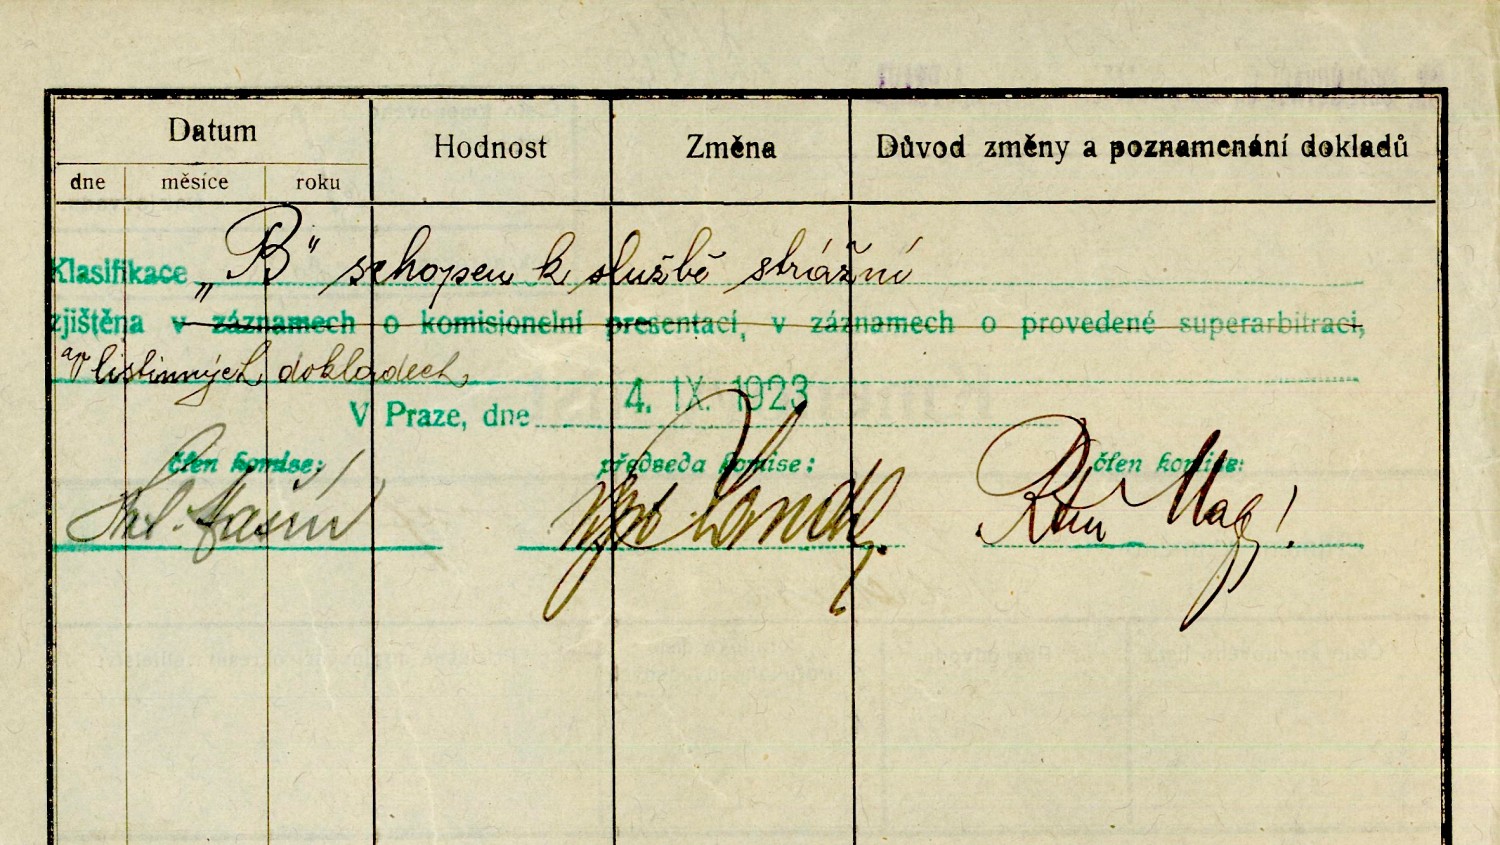 Datum
Hodnost
Změna
Důvod změny a poznamenání dokladů
dne měsíce roku
Klasifikace „B“ schopen k službě strážní
zjištěna v záznamech o komisionelní presentaci, v záznamech o provedené superarbitraci,
listinných dokladech
V Praze, dne 4. IX. 1923
člen komise:
předseda komise:
člen komise: